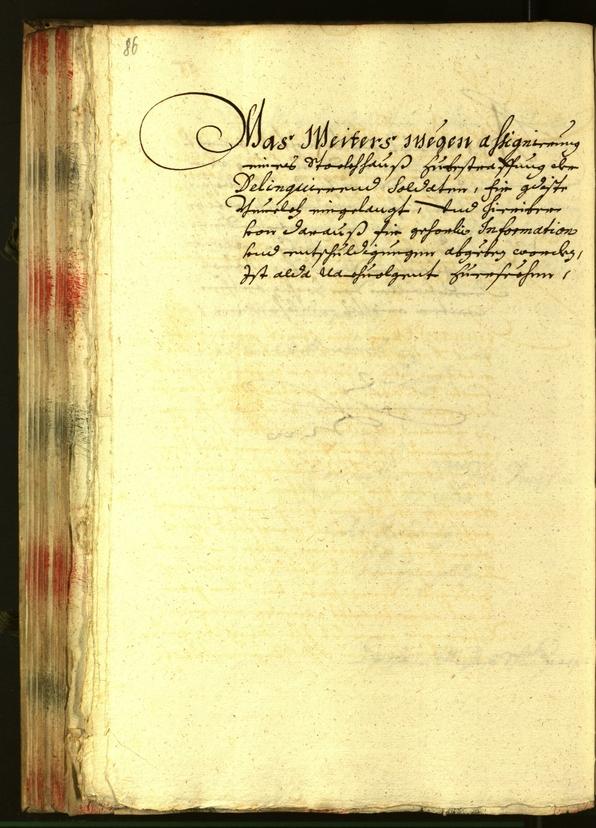 86
Was Weiters wegen assignierung
eines Stockhhauß zu bestraffung der
Delinquierend Soldaten, für guete
eingelangt, vnd hierüber
von darauß für Information
vnd entschuldigungen abgeben worden,
Ist alda Nachuolgent zuersehen,